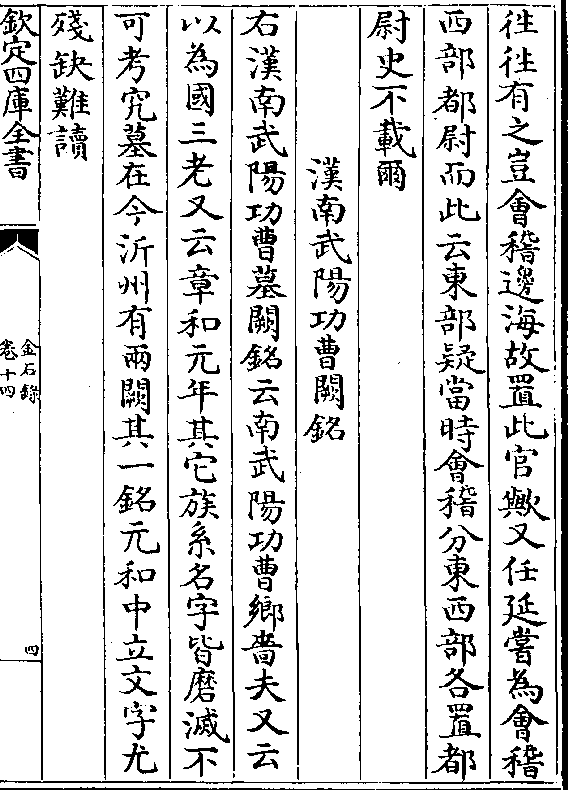 徃徃有之豈會稽邊海故置此官歟又任延嘗為會稽
西部都尉而此云東部疑當時會稽分東西部各置都
尉史不載爾
漢南武陽功曹闕銘
右漢南武陽功曹墓闕銘云南武陽功曹鄉嗇夫又云
以為國三老又云章和元年其它族系名字皆磨滅不
可考究墓在今沂州有兩闕其一銘元和中立文字尤
殘缺難讀
欽定四庫全書
金石錄
卷十四
四